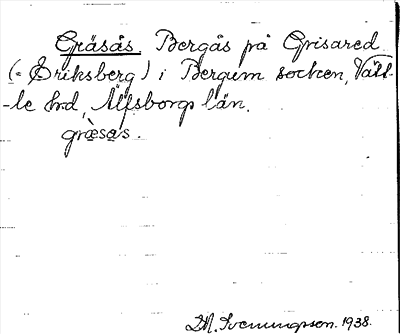 Gräsås. Bergås på Grisared
(= Eriksberg) i Bergum socken, Vätt-
-le hd, Älfsborgs län.
gràsas.
D.M. Svenungsson. 1938.